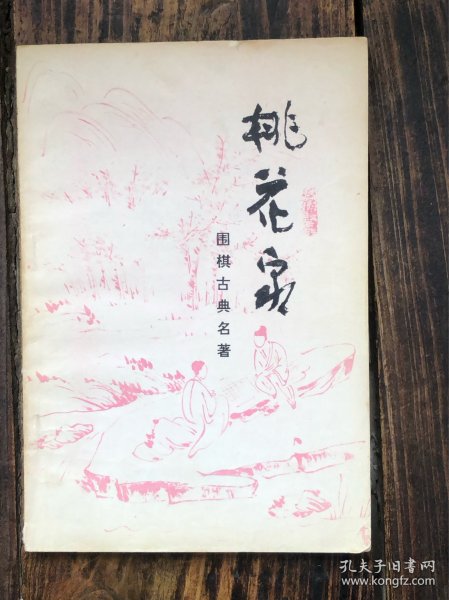 桃花泉
围棋古典名著
孔夫子旧书网
www.kongfz.com